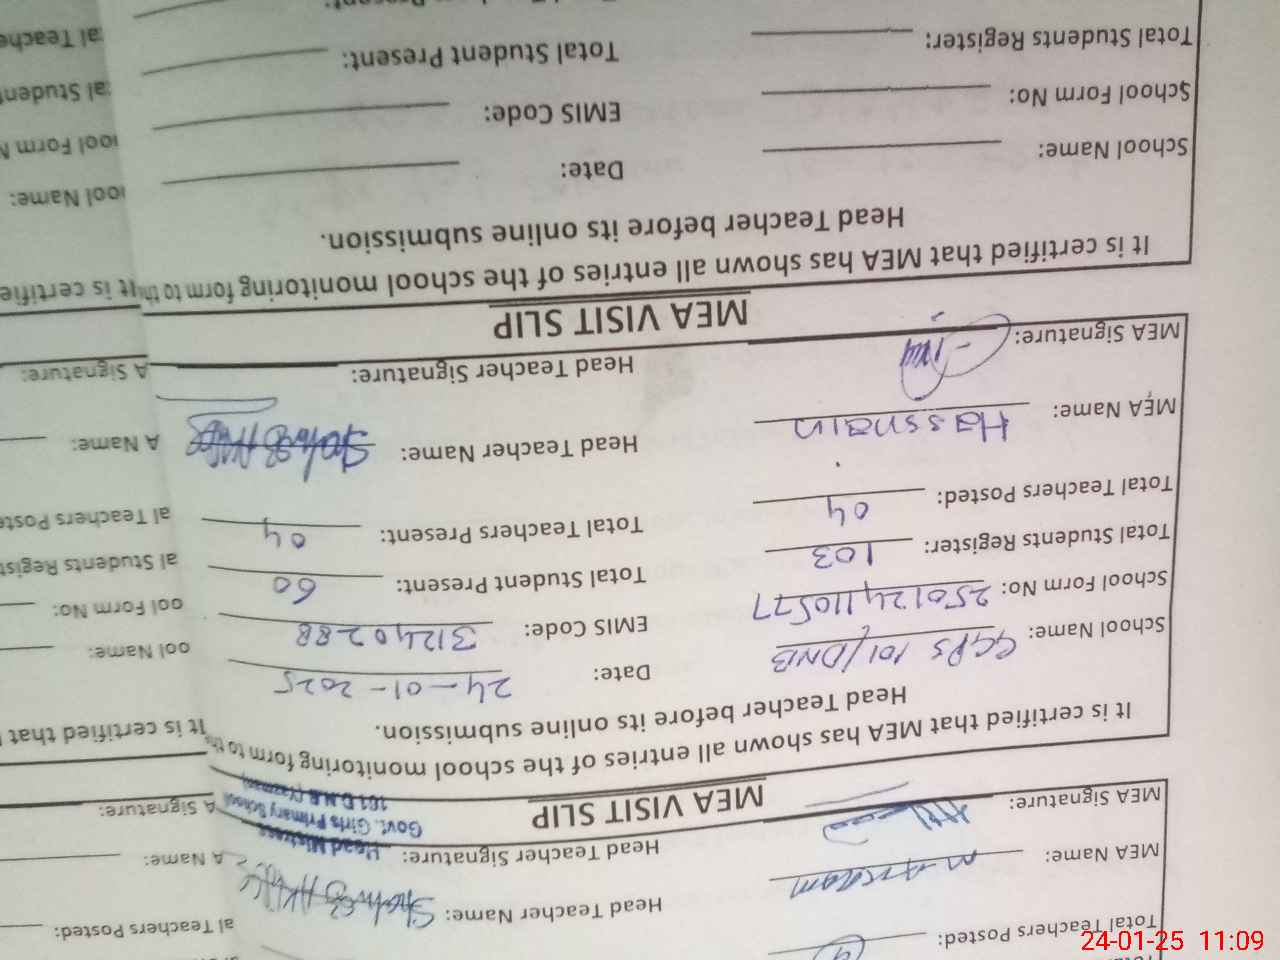 Total Teachers Posted:
MEA Name: M Arslam Head Teacher Name:
MEA Signature: Head Teacher Signature:
Head Mistress
Govt. Girls Primary School
101 D.N.B (Yazman)
MEA VISIT SLIP
It is certified that MEA has shown all entries of the school monitoring form to the
Head Teacher before its online submission.
School Name: GGPS 101/DNB Date: 24-01-2025
School Form No: 250124110577 EMIS Code: 31240288
Total Students Register: 103 Total Student Present: 60
Total Teachers Posted: 04 Total Teachers Present: 04
MEA Name: Hassnain Head Teacher Name:
MEA Signature: Head Teacher Signature:
MEA VISIT SLIP
It is certified that MEA has shown all entries of the school monitoring form to th
Head Teacher before its online submission.
School Name: Date:
School Form No: EMIS Code:
Total Students Register: Total Student Present:
al Teachers Posted:
A Name:
A Signature:
It is certified that
ool Name:
ool Form No:
al Students Regist
al Teachers Poste
A Name:
A Signature:
It is certifie
ool Name:
ool Form N
al Student
al Teache
24-01-25 11:09